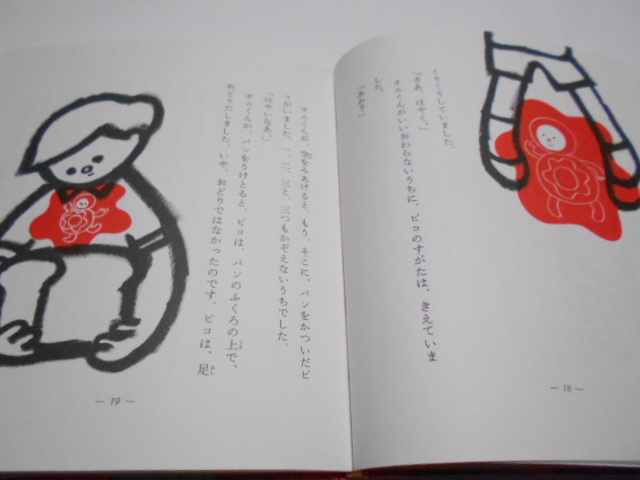 くりくりしていました。
「さあ、はやく。」
オムくんがいいおわらないうちに、ピコのすがたは、きえていま
した。
— 18 —
オムくんが、空をみあけると、もう、そこに、パンをかついだピ
コがいました。一、二、三と、三つもかぞえないうちでした。
「はやいなあ。」
オムくんが、パンをうけとると、ピコは、パンのふくろの上で、
おどりだしました。いや、おどりではなかったのです。ピコは、足
— 19 —